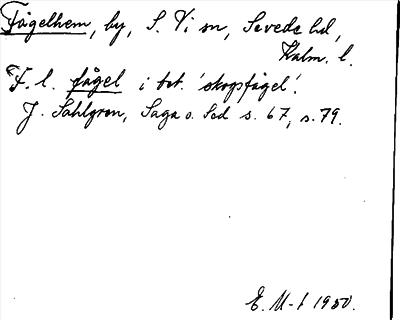 Fågelhem, by, S. Vi sn, Sevede hd,
Kalm. l.
F. l. fågel i bet. 'skogsfågel'.
J. Sahlgren, Saga o. Sed s. 67, s. 79.
E. M-t 1950.